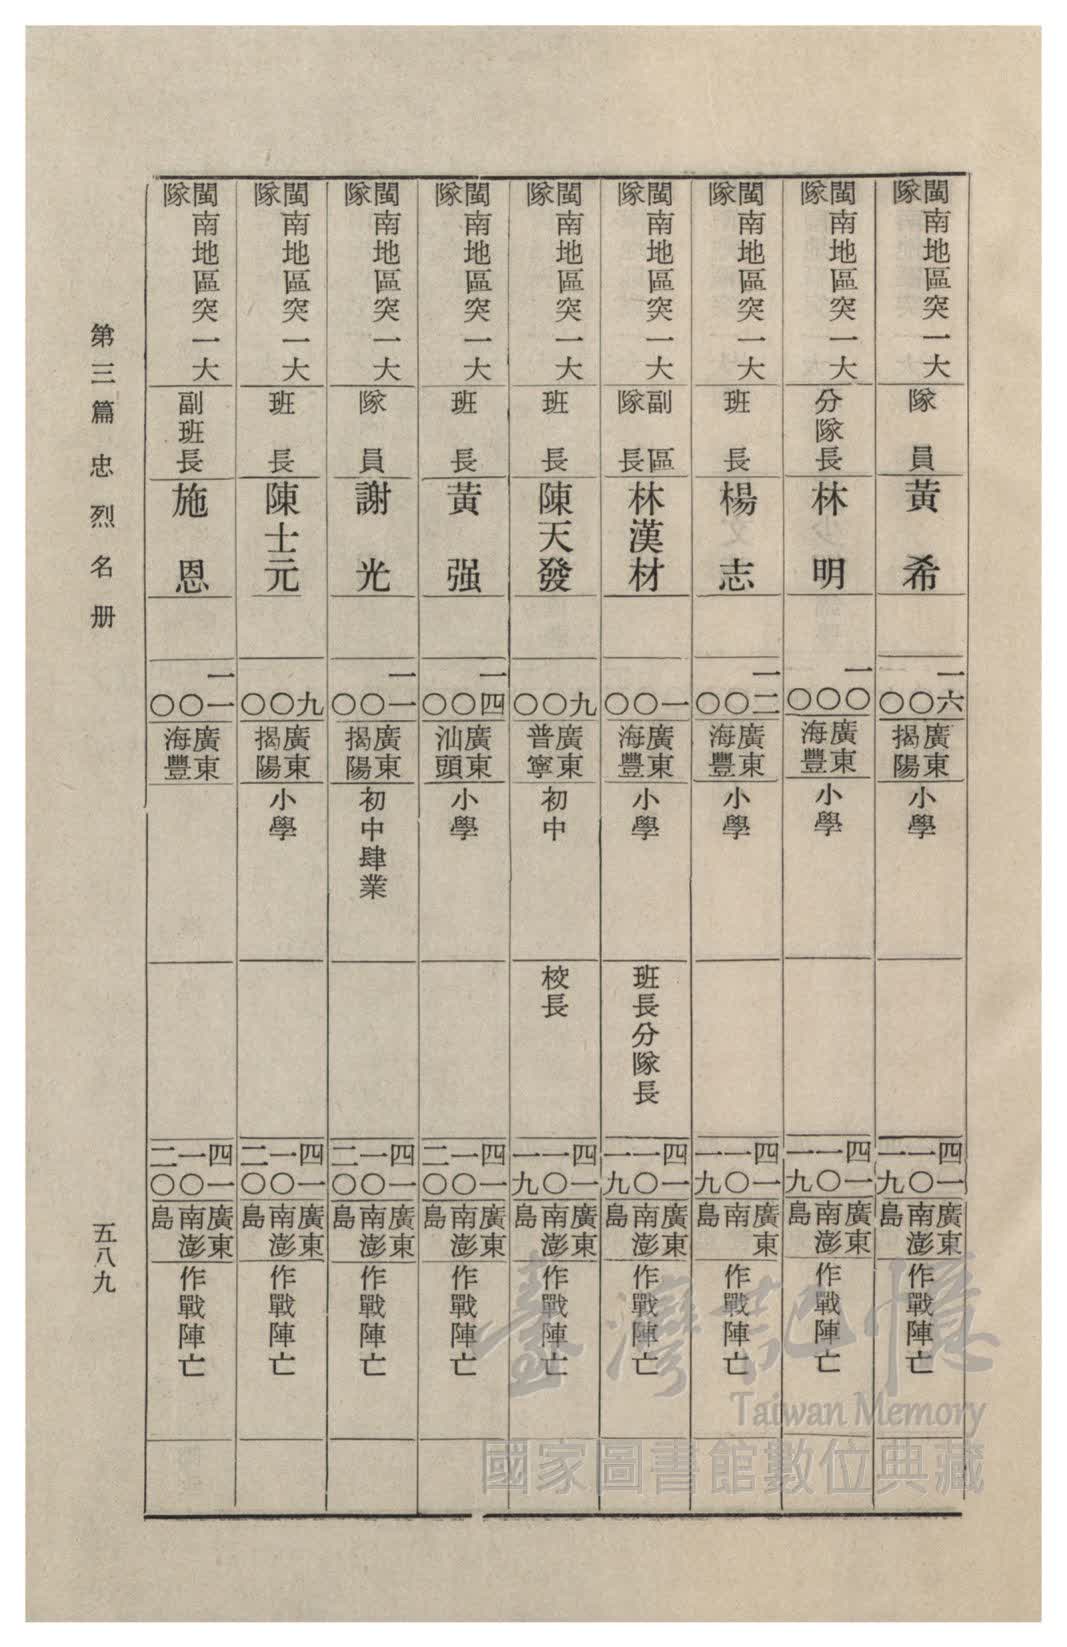 閩南地區突一大隊
隊員
黃希
一六〇〇
廣東揭陽
小學
四一一〇一九
廣東南澎島
作戰陣亡
閩南地區突一大隊
分隊長
林明
一〇〇〇
廣東海豐
小學
四一一〇一九
廣東南澎島
作戰陣亡
閩南地區突一大隊
班長
楊志
一二〇〇
廣東海豐
小學
四一一〇一九
廣東南島
作戰陣亡
閩南地區突一大隊
副區隊長
林漢材
一〇〇
廣東海豐
小學
班長分隊長
四一一〇一九
廣東南澎島
作戰陣亡
閩南地區突一大隊
班長
陳天發
九〇〇
廣東普寧
初中
校長
四一一〇一九
廣東南澎島
作戰陣亡
閩南地區突一大隊
班長
黃强
一四〇〇
廣東汕頭
小學
四一一〇二〇
廣東南澎島
作戰陣亡
閩南地區突一大隊
隊員
謝光
一一〇〇
廣東揭陽
初中肄業
四一一〇二〇
廣東南澎島
作戰陣亡
閩南地區突一大隊
班長
陳士元
九〇〇
廣東揭陽
小學
四一一〇二〇
廣東南澎島
作戰陣亡
閩南地區突一大隊
副班長
施恩
一一〇〇
廣東海豐
四一一〇二〇
廣東南澎島
作戰陣亡
第三篇 忠烈名册
五八九
臺灣記憶
Taiwan Memory
國家圖書館數位典藏